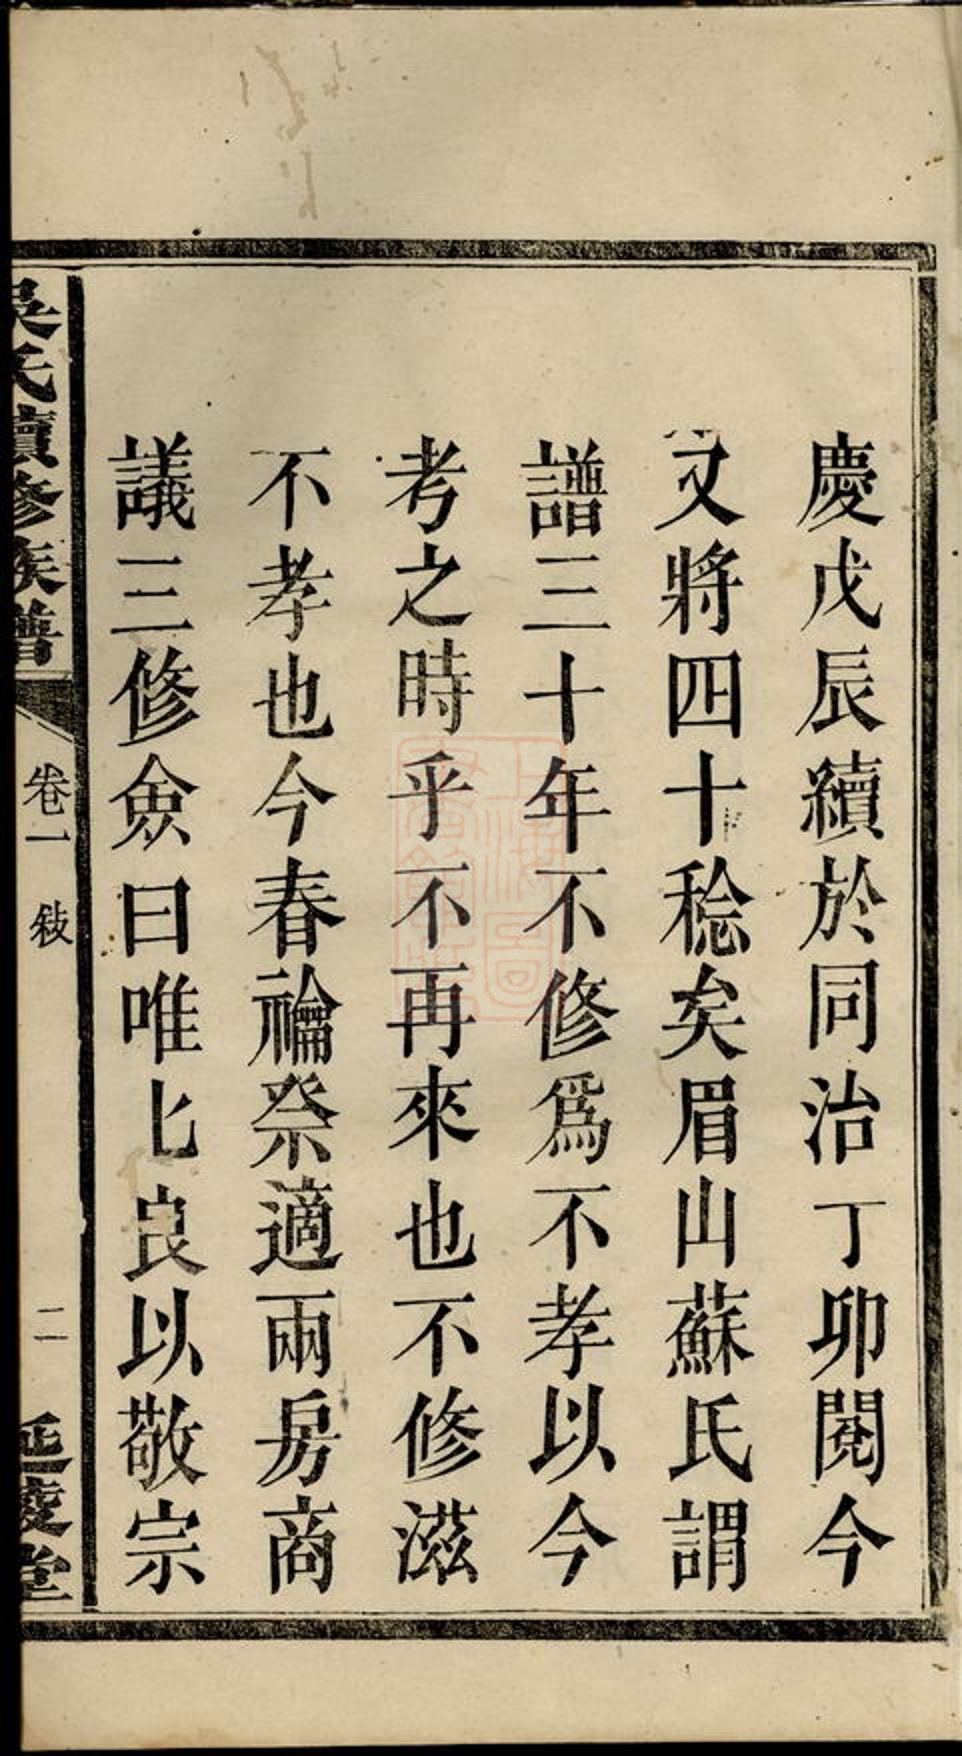 慶戊辰續於同治丁卯閱今
又將四十稔矣眉山蘇氏謂
譜三十年不修爲不孝以今
考之時乎不再來也不修滋
不孝也今春禴祭適兩房商
議三修僉曰唯匕良以敬宗
吳氏續修族譜
卷一
敍
二
延陵堂